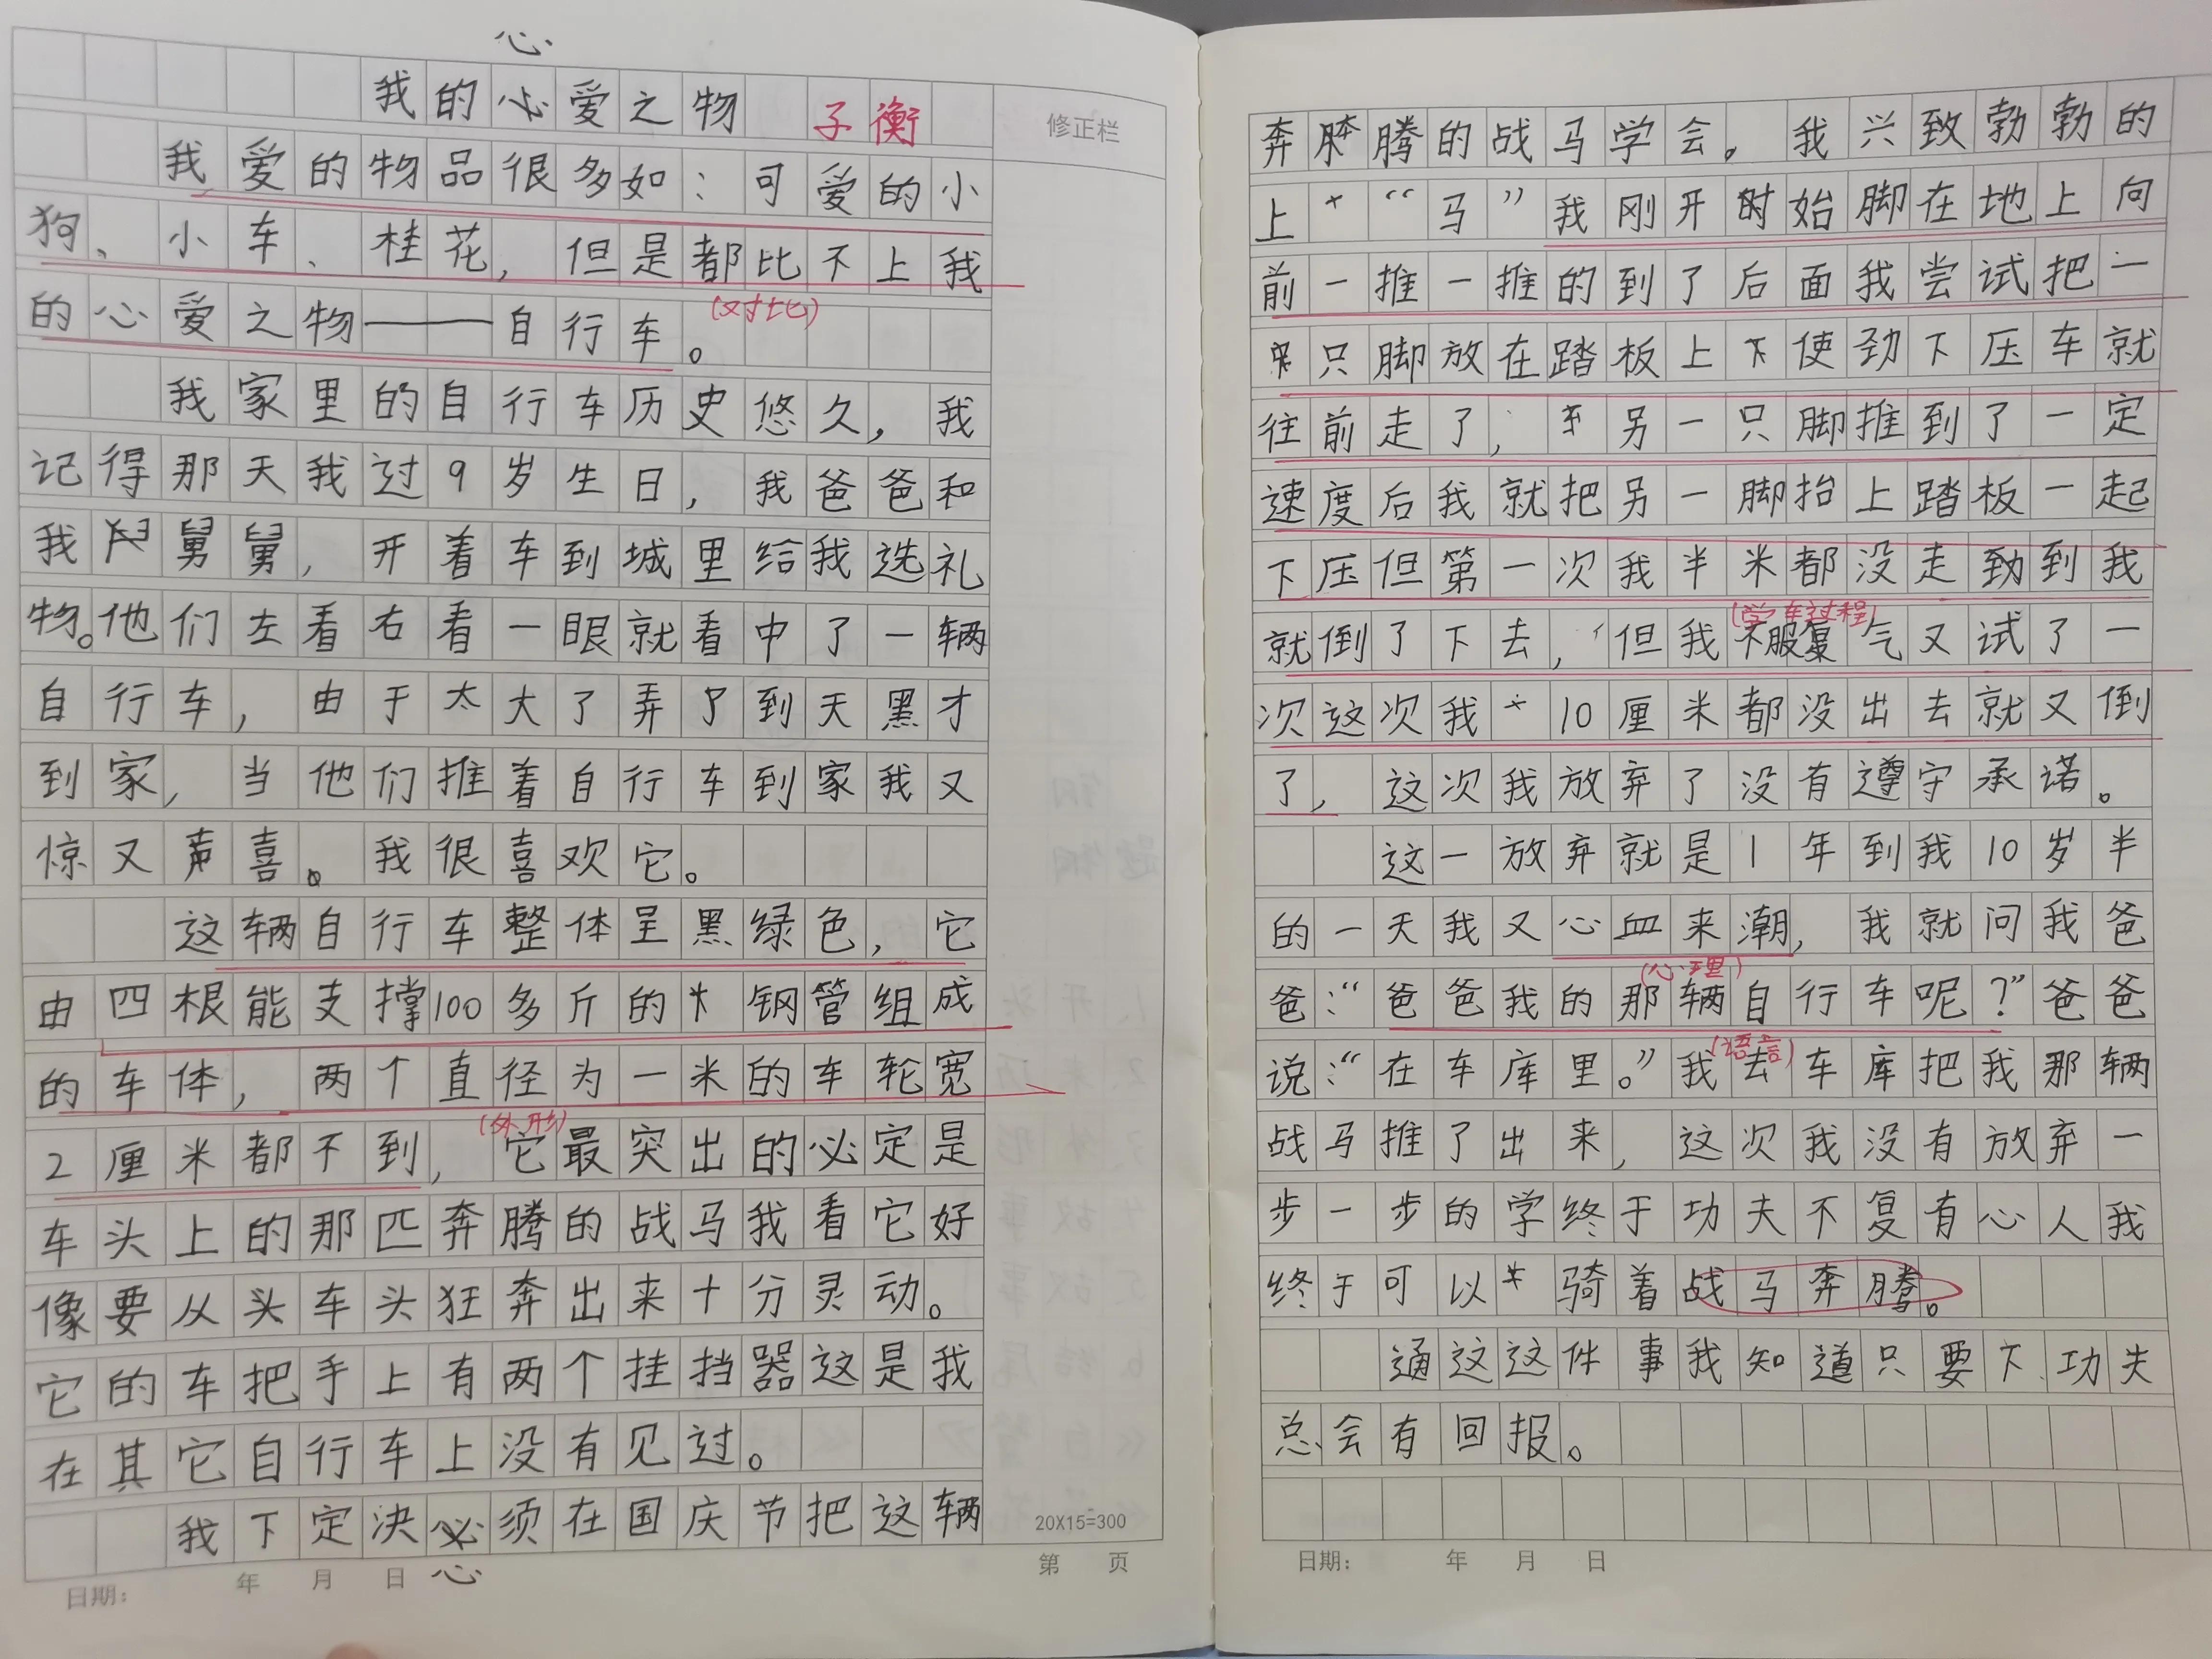 心
我的心爱之物 子衡
修正栏
我爱的物品很多如：可爱的小
狗、小车、桂花，但是都比不上我
(对比)
的心爱之物——自行车。
我家里的自行车历史悠久，我
记得那天我过9岁生日，我爸爸和
我舅舅，开着车到城里给我选礼
物。他们左看右看一眼就看中了一辆
自行车，由于太大了弄了到天黑才
到家，当他们推着自行车到家我又
惊又喜。我很喜欢它。
这辆自行车整体呈黑绿色，它
由四根能支撑100多斤的钢管组成
的车体，两个直径为一米的车轮宽
(外形)
2厘米都不到，它最突出的必定是
车头上的那匹奔腾的战马我看它好
像要从头车头狂奔出来十分灵动。
它的车把手上有两个挂挡器这是我
在其它自行车上没有见过。
我下定决必须在国庆节把这辆
心
20X15=300
日期： 年 月 日
第 页
奔腾的战马学会。我兴致勃勃的
上“马”我刚开始脚在地上向
前一推一推的到了后面我尝试把一
只脚放在踏板上下使劲下压车就
往前走了，另一只脚推到了一定
速度后我就把另一脚抬上踏板一起
下压但第一次我半米都没走到我
(学车过程)
就倒了下去，但我不服气又试了一
次这次我10厘米都没出去就又倒
了，这次我放弃了没有遵守承诺。
这一放弃就是1年到我10岁半
的一天我又心血来潮，我就问我爸
(心理)
爸：“爸爸我的那辆自行车呢？”爸爸
(语言)
说：“在车库里。”我去车库把我那辆
战马推了出来，这次我没有放弃一
步一步的学终于功夫不复有心人我
终于可以骑着战马奔腾。
通这这件事我知道只要下功夫
总会有回报。
日期： 年 月 日